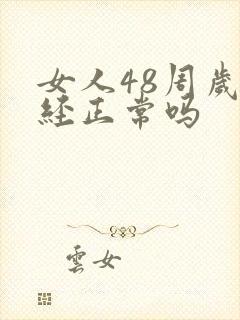 女人48周岁
经正常吗
雲女